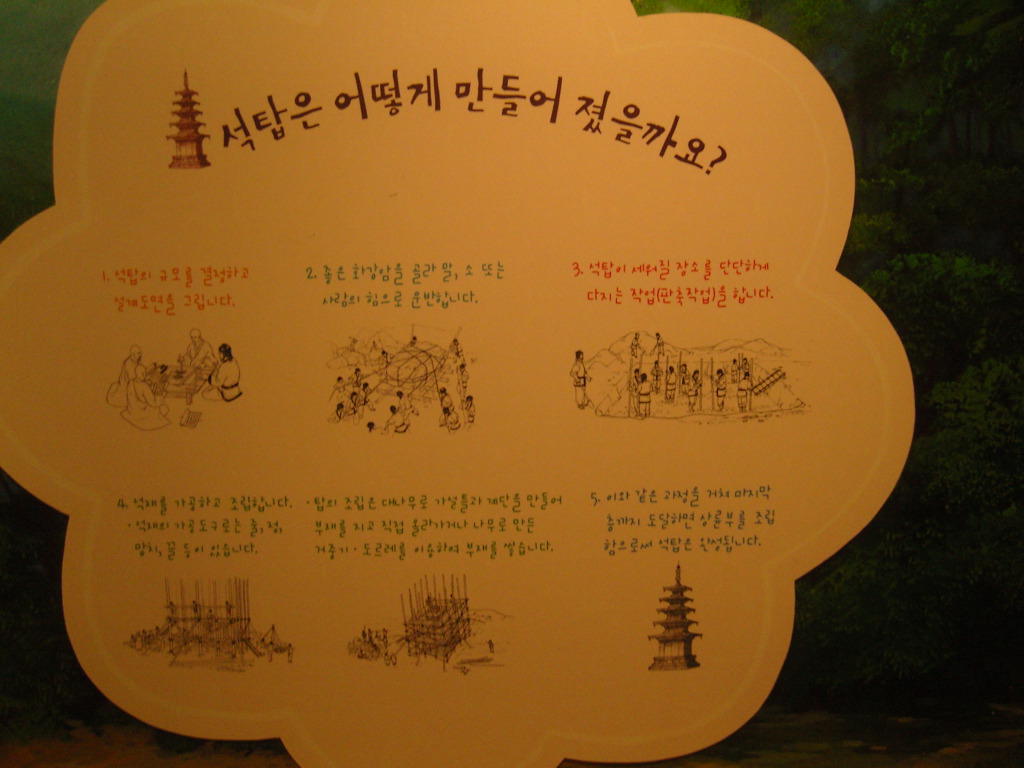 석탑은 어떻게 만들어 졌을까요?
1. 석탑의 규모를 결정하고
설계도면을 그립니다.
2. 좋은 화강암을 골라 말, 소 또는
사람의 힘으로 운반합니다.
3. 석탑이 세워질 장소를 단단하게
다지는 작업(판축작업)을 합니다.
4. 석재를 가공하고 조립합니다.
· 석재의 가공도구로는 줄, 정,
망치, 끌 등이 있습니다.
· 탑의 조립은 대나무로 가설틀과 계단을 만들어
부재를 지고 직접 올라가거나 나무로 만든
거중기 · 도르레를 이용하여 부재를 쌓습니다.
5. 이와 같은 과정을 거쳐 마지막
층까지 도달하면 상륜부를 조립
함으로써 석탑은 완성됩니다.